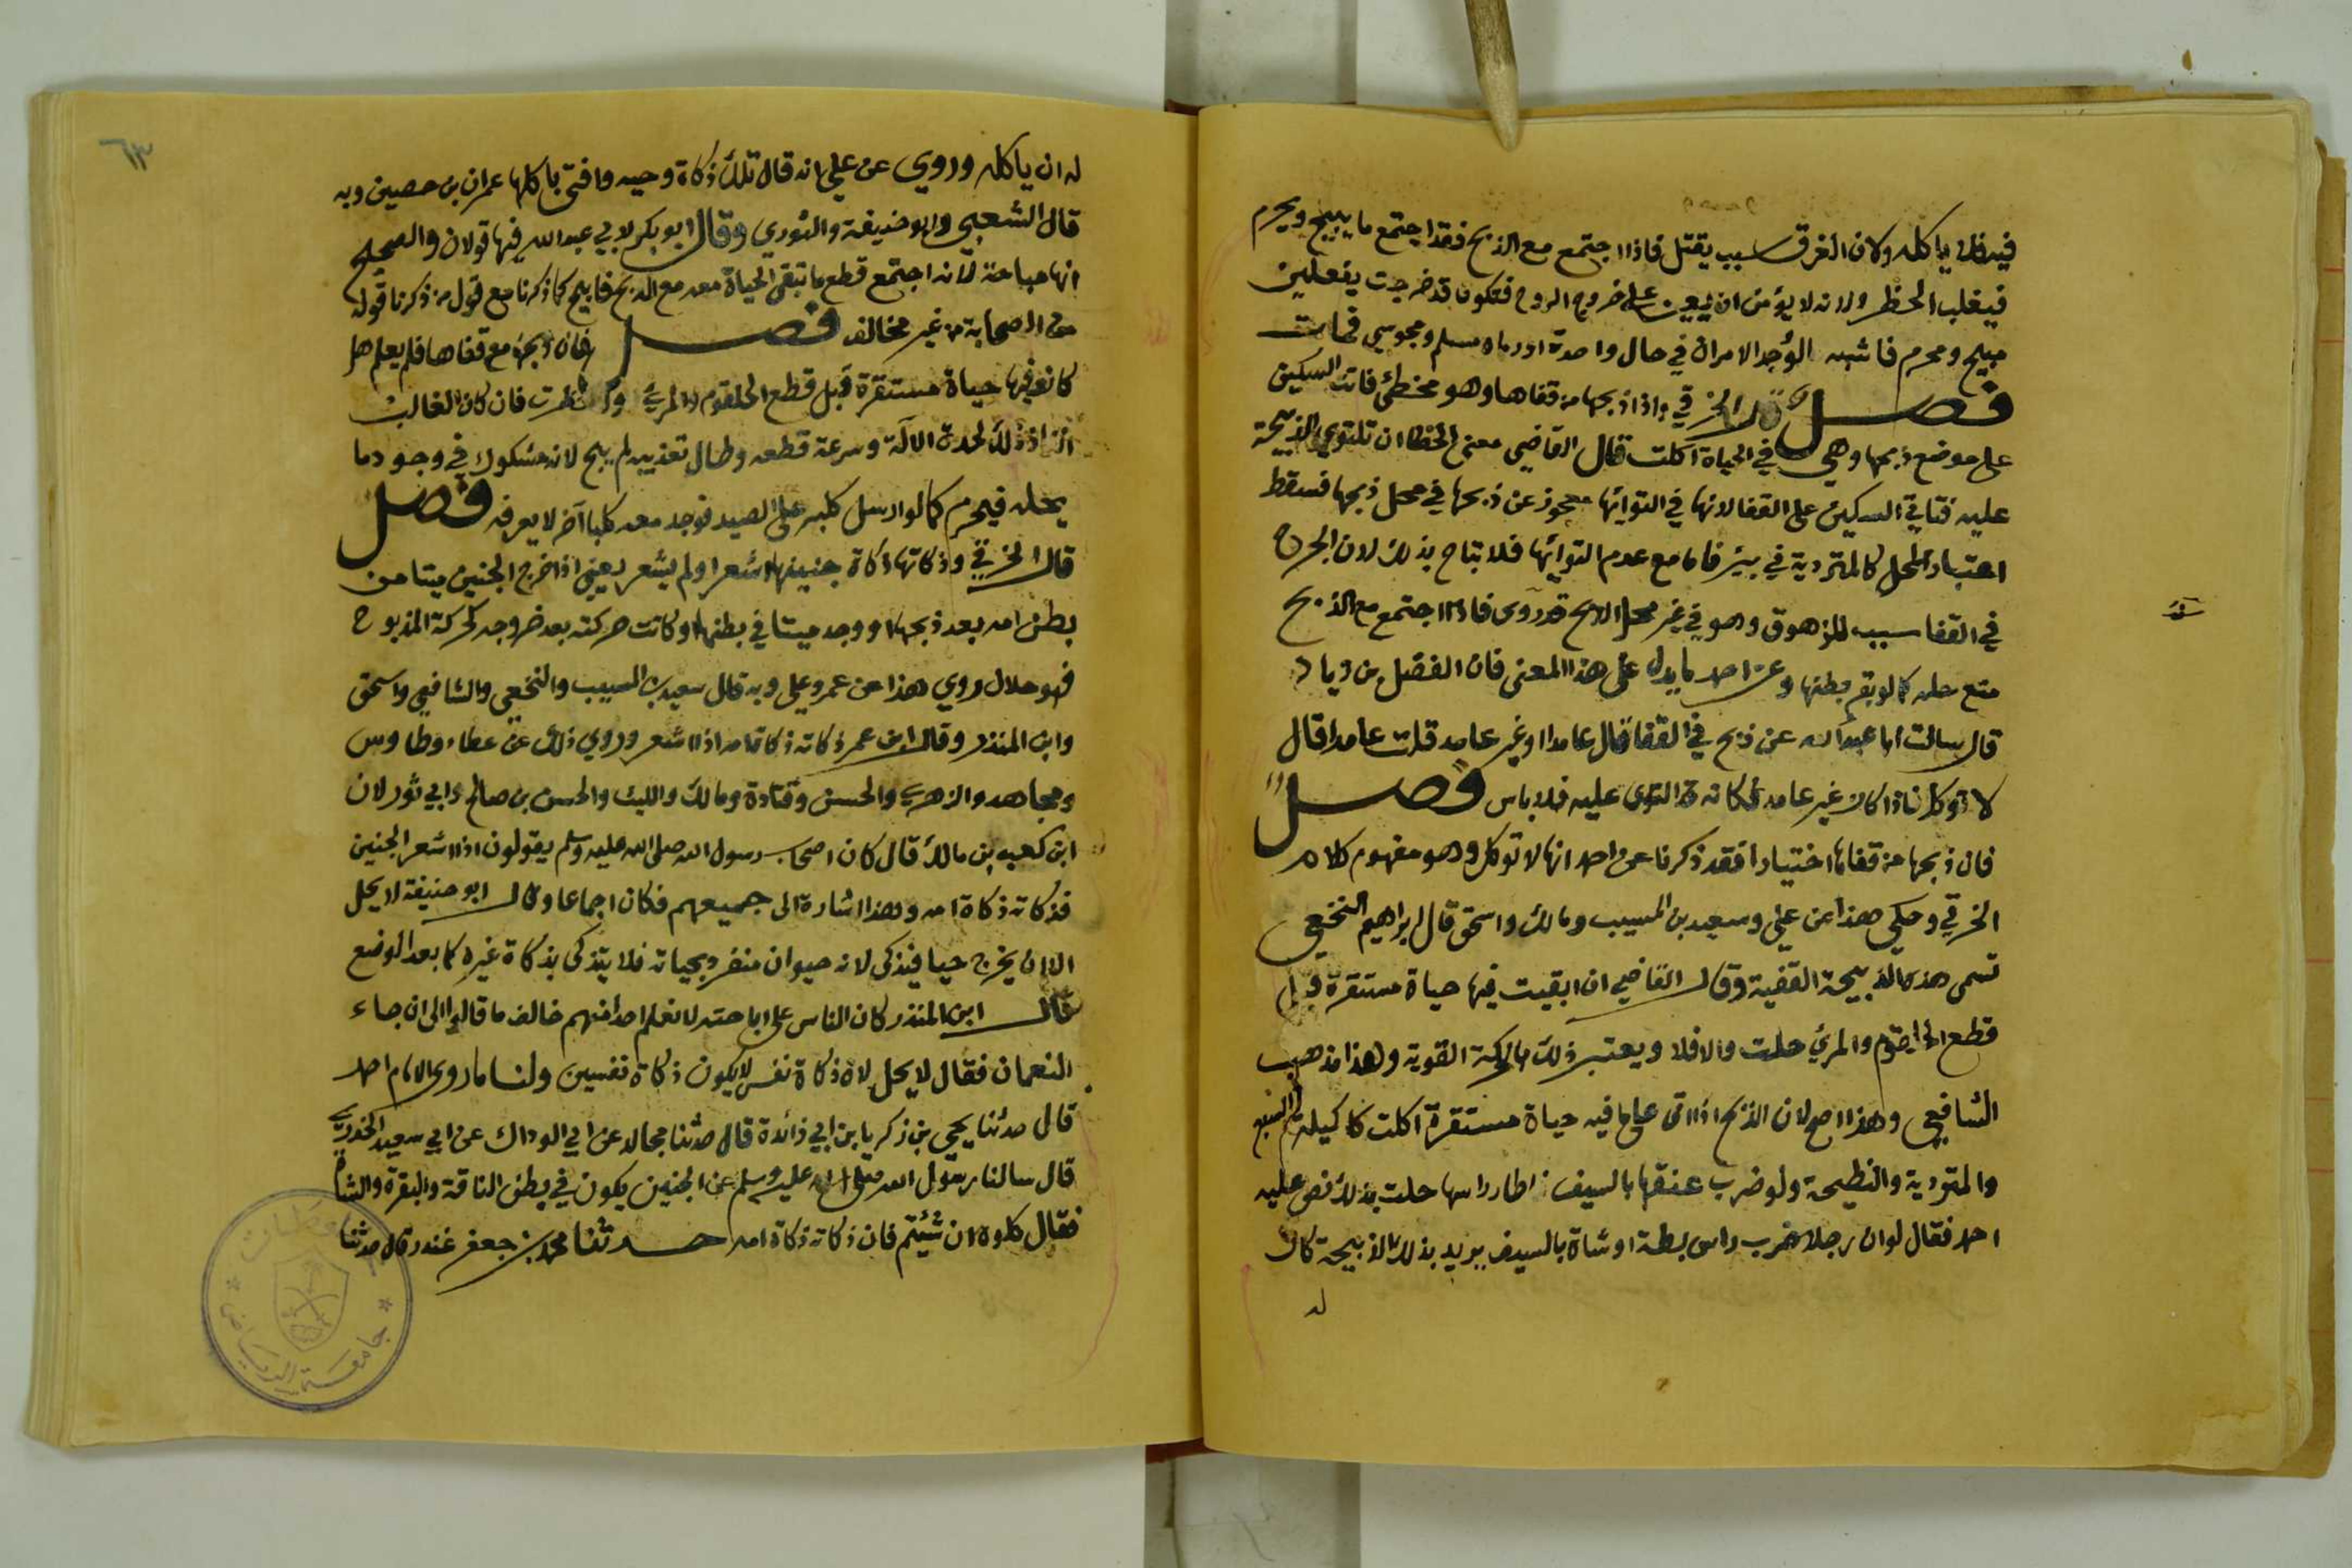 فيدخل ياكله ولان الغرق سبب يقتل فاذا اجتمع مع الذبح فقد اجتمع ما يبيح ويحرم
فيغلب الحظر ولانه لا يؤمن ان يعين على خروج الروح فتكون قد خرجت بفعلين
مبيح ومحرم فاشبه لو وجد الامران في حال واحدة او رماه مسلم ومجوسي فمات
فصل قال الخرقي واذا ذبحها من قفاها وهو مخطئ فاتت السكين
على موضع ذبحها وهي في الحياة اكلت قال القاضي معنى الخطا ان تلتوي الذبيحة
عليه فتاتي السكين على القفا لانها في التوائها معجوز عن ذبحها في محل ذبحها فسقط
اعتبار المحل كالمتردية في بير فاما مع عدم التوائها فلا تباح بذلك لان الجرح
في القفا سبب للزهوق وهو في غير محل الذبح فاذا اجتمع مع الذبح
منع حله كما لو بقر بطنها وعن احمد ما يدل على هذا المعنى فان الفضل بن زياد
قال سالت ابا عبد الله عن ذبح في القفا قال عامدا او غير عامد قلت عامدا قال
لا توكل فاذا كان غير عامد كانه التوى عليه فلا باس فصل
فان ذبحها من قفاها اختيارا فقد ذكرنا عن احمد انها لا توكل وهو مفهوم كلام
الخرقي وحكي هذا عن علي وسعيد بن المسيب ومالك واسحق قال ابراهيم النخعي
تسمى هذه الذبيحة القفية وقال القاضي ان ابقيت فيها حياة مستقرة قبل
قطع الحلقوم والمرئ حلت والا فلا ويعتبر ذلك بالحركة القوية وهذا مذهب
الشافعي وهذا اصح لان الذبح اذا اتى على ما فيه حياة مستقرة اكلت كاكيلة السبع
والمتردية والنطيحة ولو ضرب عنقها بالسيف فاطار راسها حلت بذلك نص عليه
احمد فقال لو ان رجلا ضرب راس بطة او شاة بالسيف يريد بذلك الذبيحة كان
له
٦٣
له ان ياكله وروي عن علي انه قال تلك ذكاة وحيه وافتى باكلها عمران بن حصين وبه
قال الشعبي وابو حنيفة والثوري وقال ابو بكر لابي عبد الله فيها قولان والصحيح
انها مباحة لانه اجتمع قطع ما تبقى الحياة معه مع الذبح فابيح كما ذكرنا مع قول من ذكرنا قوله
من الصحابة من غير مخالف فصل فان ذبحها من قفاها فلم يعلم هل
كانت فيها حياة مستقرة قبل قطع الحلقوم والمرئ نظرت فان كان الغالب
ذلك لحدة الآلة وسرعة قطعه وطال تعذيبه لم يبح لانه مشكوك في وجود ما
يحله فيحرم كما لو ارسل كلبه على الصيد فوجد معه كلبا آخر لا يعرفه فصل
قال الخرقي وذكاتها ذكاة جنينها اشعر او لم يشعر يعني اذا خرج الجنين ميتا من
بطن امه بعد ذبحها او وجد ميتا في بطنها او كانت حركته بعد خروجه كحركة المذبوح
فهو حلال روي هذا عن عمر وعلي وبه قال سعيد بن المسيب والنخعي والشافعي واسحق
وابن المنذر وقال ابن عمر ذكاته ذكاة امه اذا اشعر وروي ذلك عن عطاء وطاوس
ومجاهد والزهري والحسن وقتادة ومالك والليث والحسن بن صالح وابي ثور لان
ابن كعب بن مالك قال كان اصحاب رسول الله صلى الله عليه وسلم يقولون اذا اشعر الجنين
فذكاته ذكاة امه وهذا اشارة الى جميعهم فكان اجماعا وقال ابو حنيفة لا يحل
الا ان يخرج حيا فيذكى لانه حيوان منفرد بحياته فلا يتذكى بذكاة غيره كما بعد الوضع
قال ابن المنذر كان الناس على اباحته لا نعلم احدا منهم خالف ما قالوا الى ان جاء
النعمان فقال لا يحل لان ذكاة نفس لا يكون ذكاة نفسين ولنا ما روى الامام احمد
قال حدثنا يحيى بن زكريا بن ابي زائدة قال حدثنا مجالد عن ابي الوداك عن ابي سعيد الخدري
قال سالنا رسول الله صلى الله عليه وسلم عن الجنين يكون في بطن الناقة والبقرة والشاة
فقال كلوه ان شئتم فان ذكاته ذكاة امه حدثنا محمد بن جعفر غندر قال حدثنا
جامعة الرياض